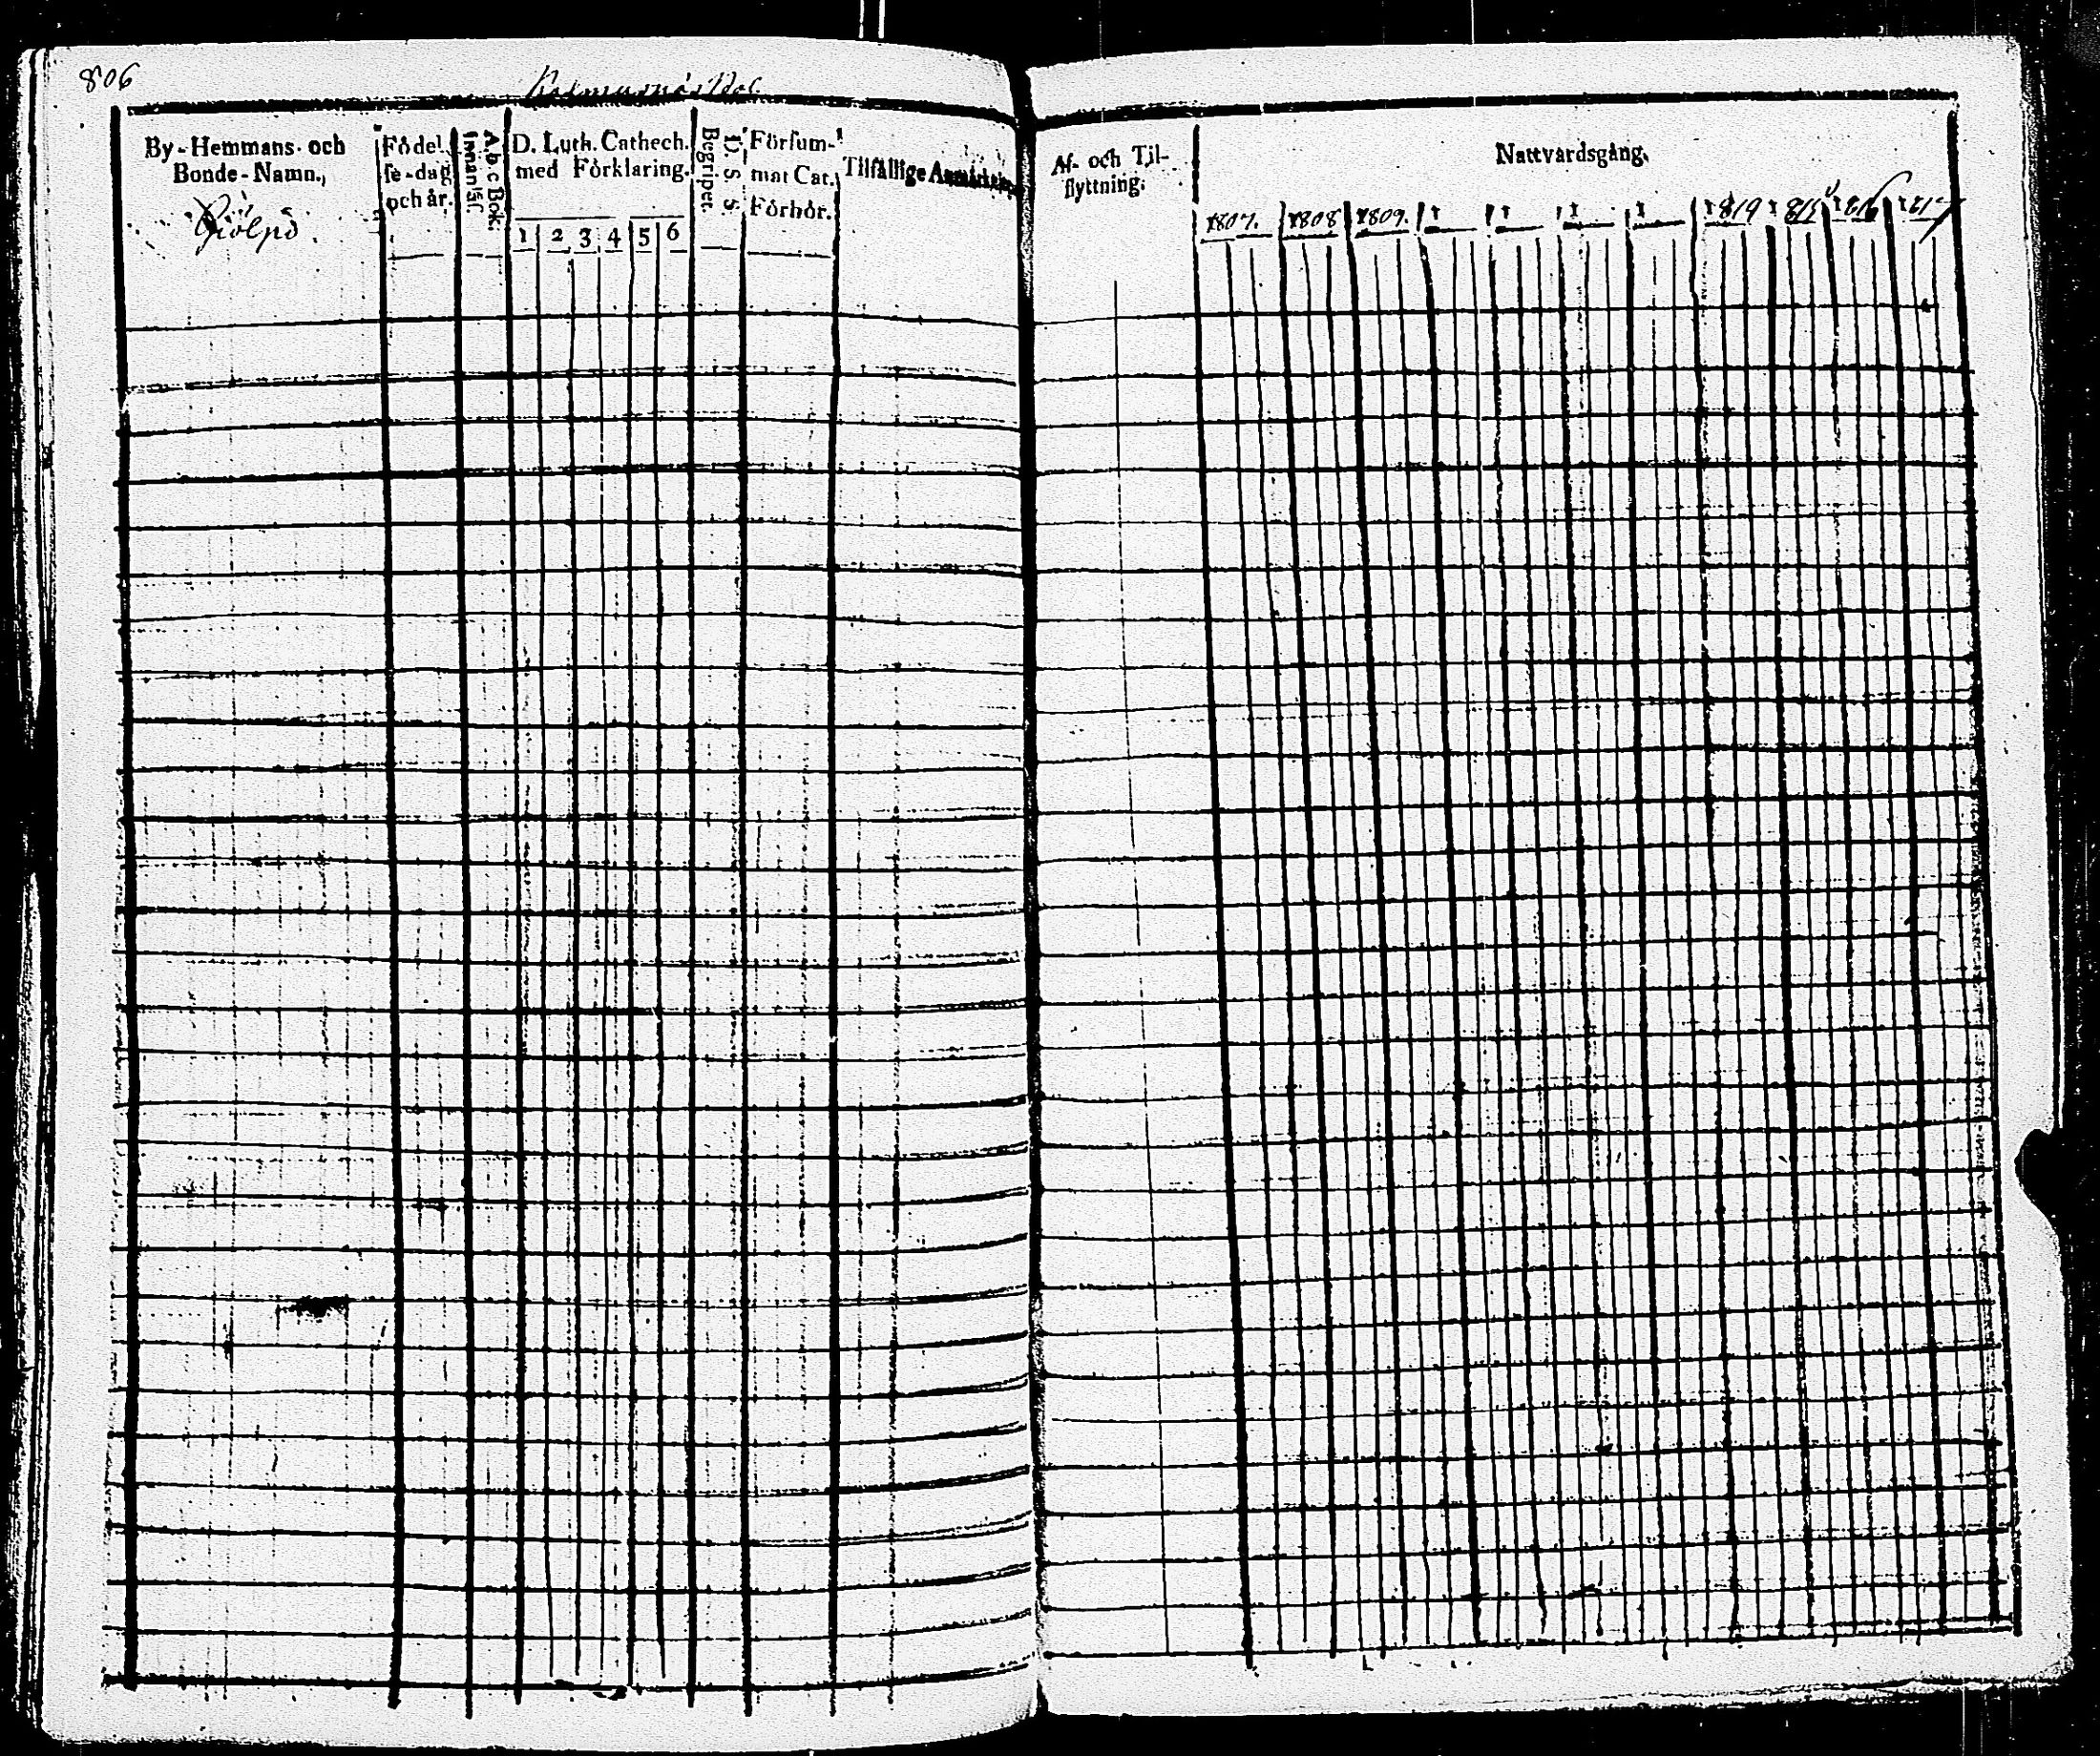 806
By-Hemmans- och
Bonde-Namn.
Födel
se-dag
och år.
Innanläs.
A b c Bok.
D. Luth. Cathech.
med Förklaring.
1 2 3 4 5 6
Begriper.
D. S. S.
Försum-
mat Cat.
Förhör.
Tilfällige Anmärkn.
Af- och Til-
flyttning.
Nattvardsgång.
1807. 1808 1809. 1 1 1 1 1819